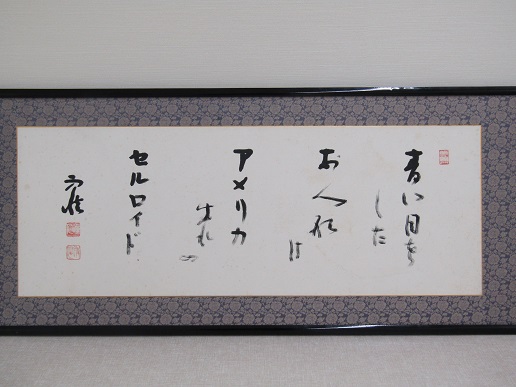 青い目を
した
お人形
は
アメリカ
生れ
の
セルロイド